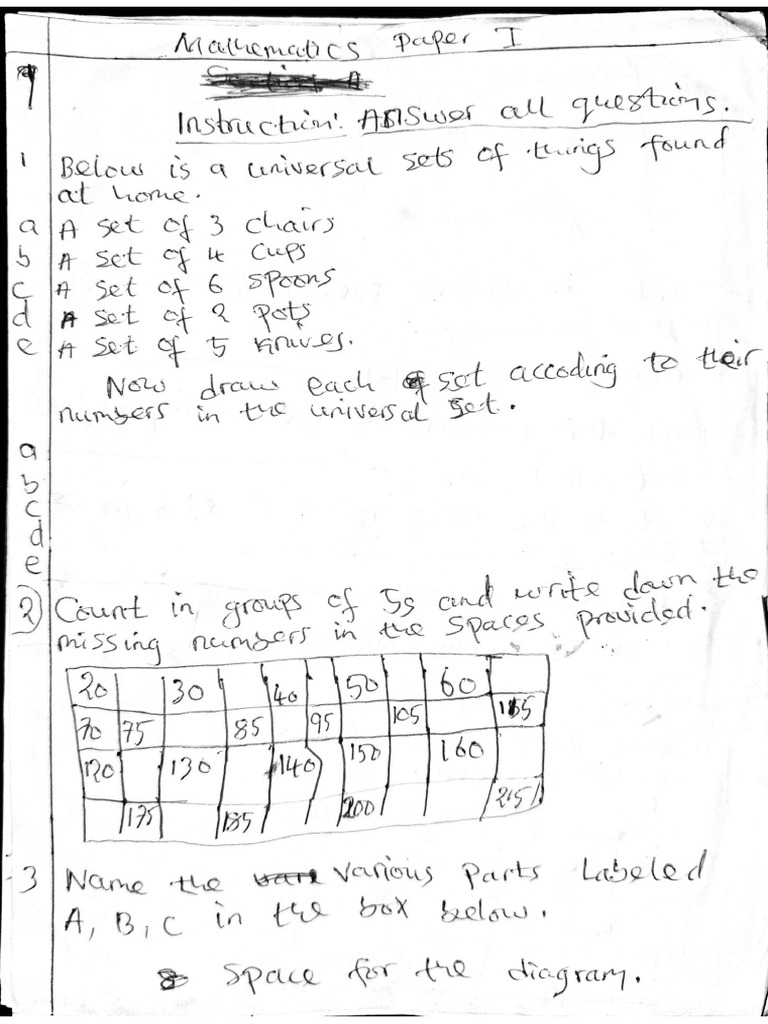 Mathematics Paper I
Instruction: Answer all questions.
1 Below is a universal sets of things found
at home.
a A set of 3 chairs
b A set of 4 cups
c A set of 6 spoons
d A set of 2 pots
e A set of 5 knives.
Now draw each set accoding to their
numbers in the universal set.
a
b
c
d
e
2) Count in groups of 5s and write down the
missing numbers in the spaces provided.
20 30 40 50 60
70 75 85 95 105 115
120 130 140 150 160
175 185 200 215
3 Name the various parts Labeled
A, B, C in the box below.
space for the diagram.